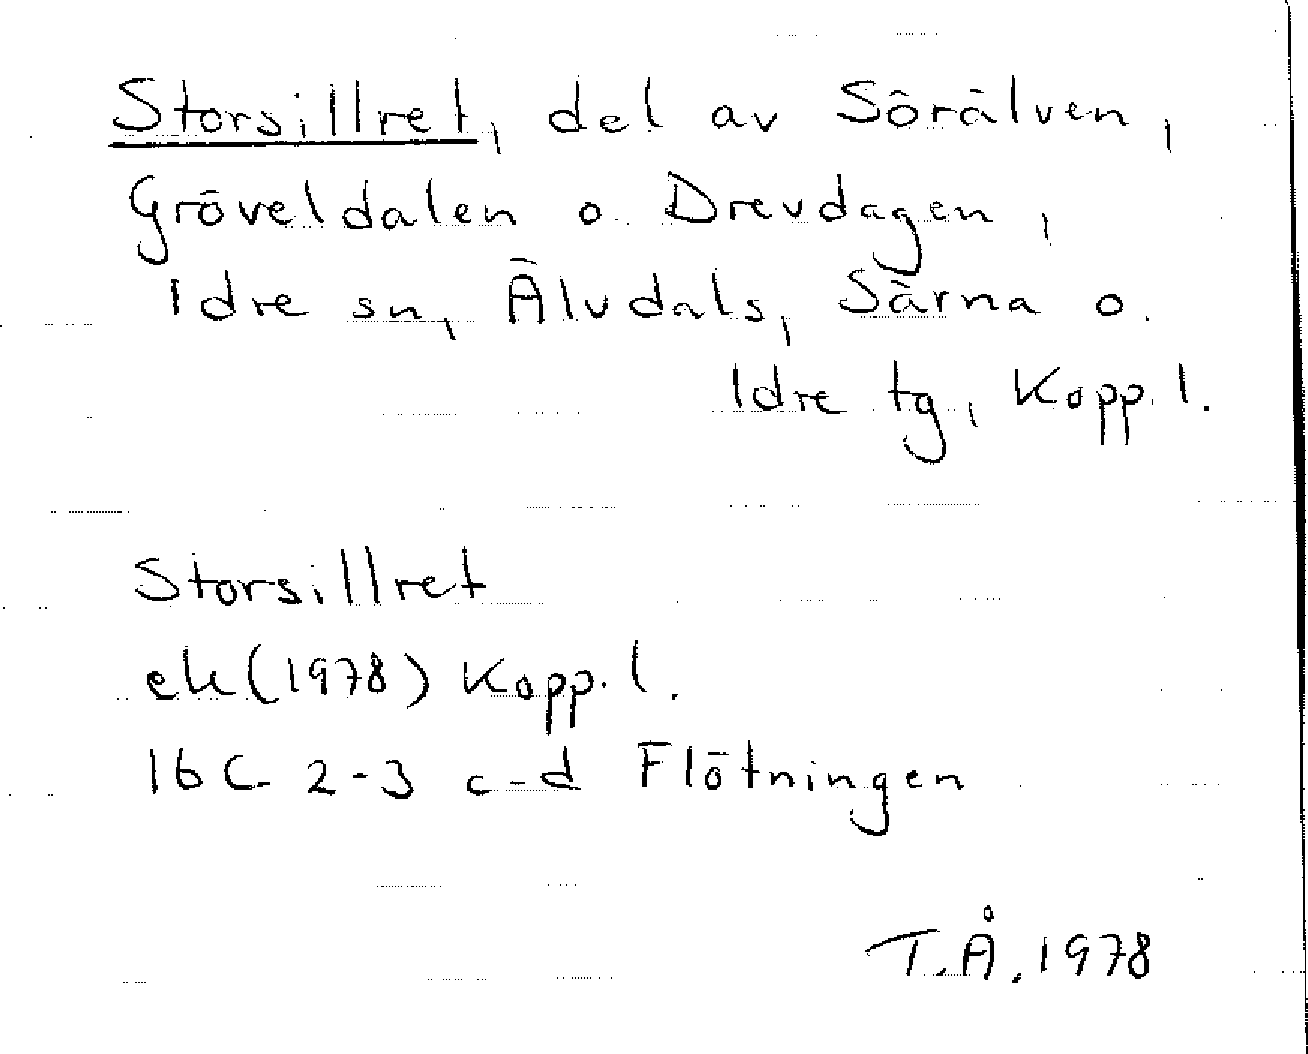 Storsillret, del av Sörälven,
Gröveldalen o. Drevdagen,
Idre sn, Älvdals, Särna o.
Idre tg, Kopp. l.
Storsillret
ek (1978) Kopp. l.
16 C 2-3 c-d Flötningen
T.Å. 1978